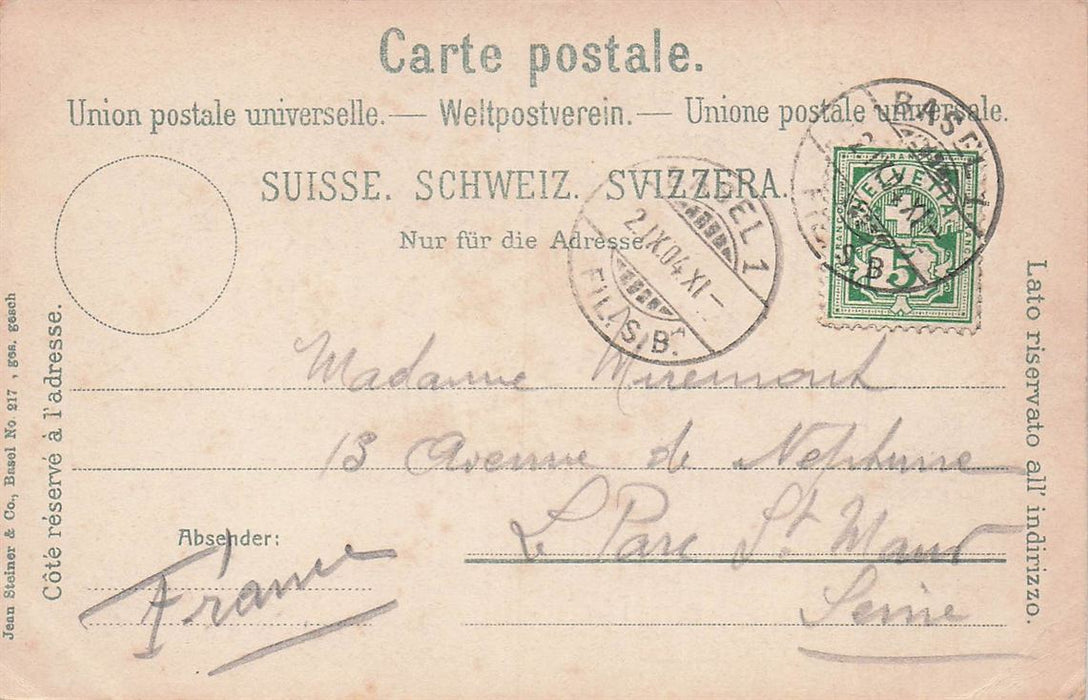 Carte postale.
Union postale universelle.— Weltpostverein.— Unione postale universale.
SUISSE. SCHWEIZ. SVIZZERA.
Nur für die Adresse.
BASEL 1
2.IX.04.XI—
FIL. S.B.
BASEL 1
XI—
S.B.
HELVETIA
5
Madame Miremont
13 Avenue de Neptune
Le Parc St. Maur
Seine
Absender:
France
Côté réservé à l'adresse.
Jean Steiner & Co., Basel No. 217 , ges. gesch
Lato riservato all' indirizzo.